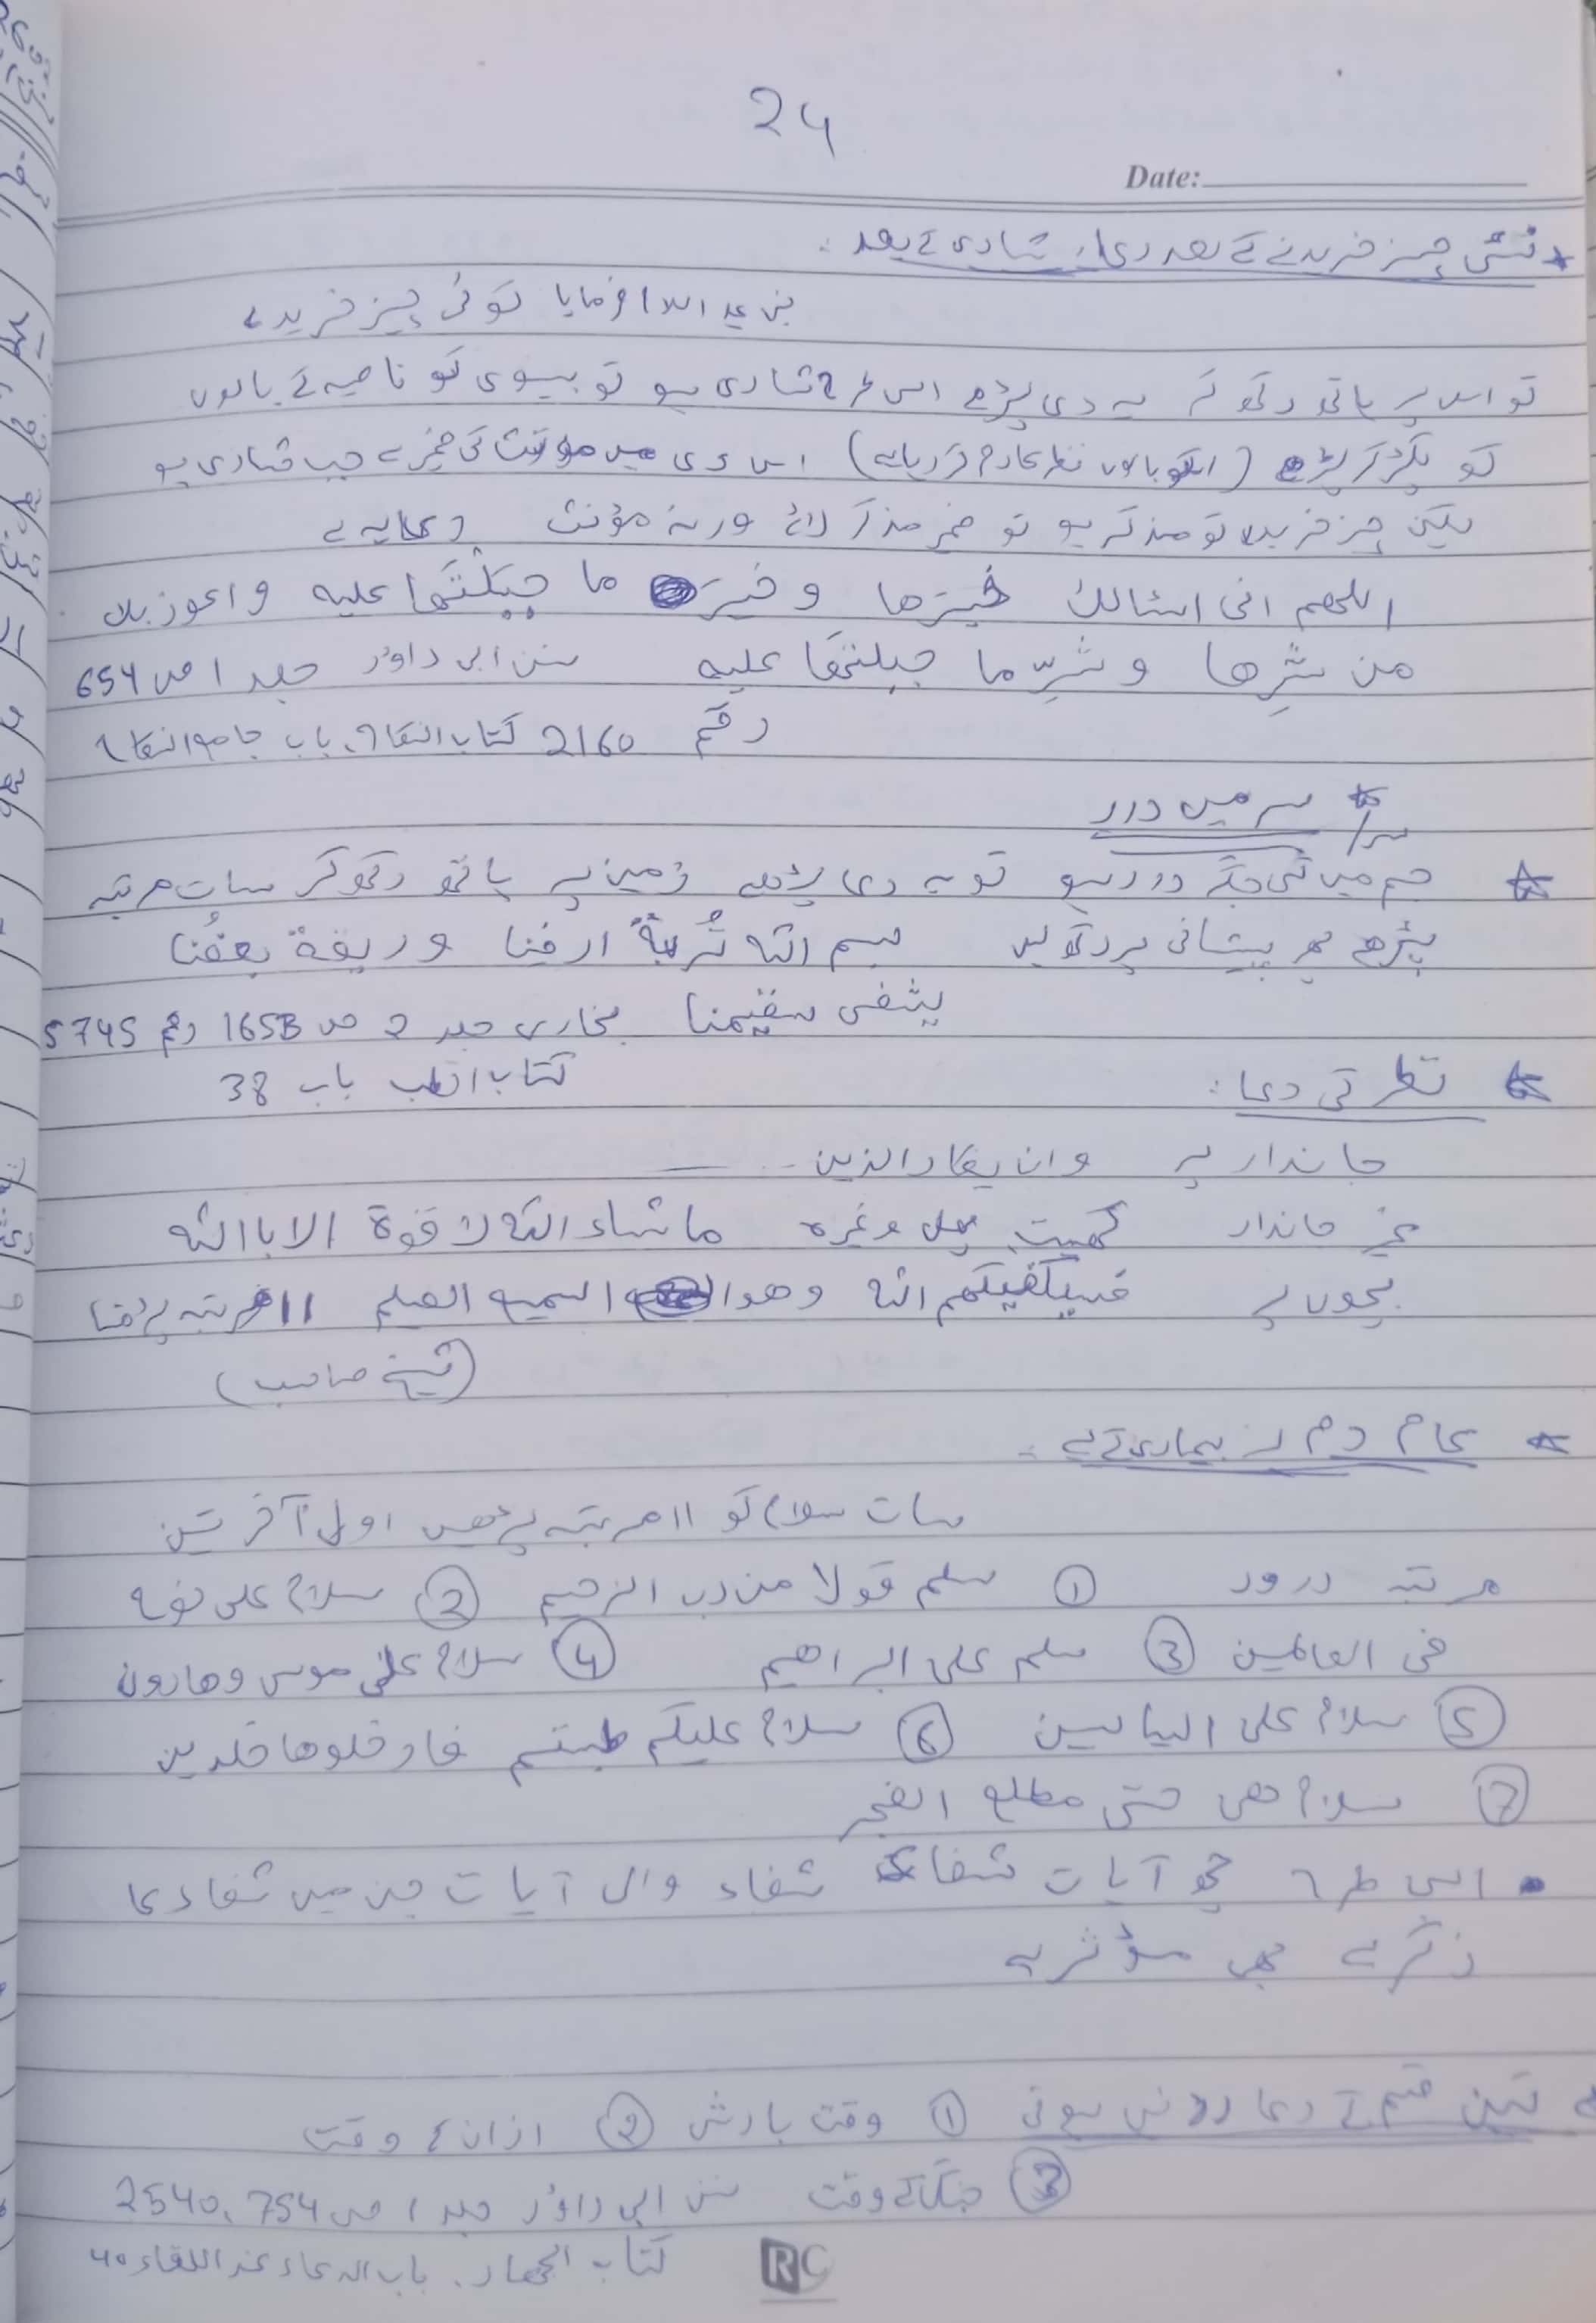 24
Date:
* نئی چیز خریدنے کے بعد دعا، شادی کے بعد :
نبی علیہ السلام فرمایا کوئی چیز خریدے
تو اس پر ہاتھ رکھ کر یہ دعا پڑھے اس طرح شادی ہو تو بیوی کو ناصیہ کے بالوں
کو پکڑ کر پڑھے ( اس دعا میں مؤنث کی ضمیر ہے جب شادی ہو
لیکن چیز خریدا تو مذکر ہو تو ضمیر مذکر لائے ورنہ مؤنث دعا یہ ہے
اللھم انی اسئالک خیرَھا وخیرَ ما جبَلْتَھا علیہ واعوذ بک
من شرِھا وشرِّ ما جبلتھا علیہ سنن ابی داؤد جلد 1 ص 654
رقم 2160 کتاب النکاح، باب جامع النکاح
* سر میں درد
* جسم میں کسی جگہ درد ہو تو یہ دعا پڑھے زمین پر ہاتھ رکھ کر سات مرتبہ
پڑھے پھر پیشانی پر رکھ لیں بسم اللہ تُربۃُ ارضنا وریقۃ بعضُنا
یشفی سقیمنا بخاری جلد 2 ص 1653 رقم 5745
کتاب الطب باب 38
* نظر کی دعا :
جاندار پر وان یکاد الذین
غیر جاندار کھیت پھل وغیرہ ماشاء اللہ لا قوۃ الا باللہ
بچوں پر فسیکفیکھم اللہ وھو السمیع العلیم 11 مرتبہ پڑھنا
(شیخ صاحب)
* عام دم ہر بیماری کے لیے :
سات سلام کو 11 مرتبہ پڑھیں اول آخر تین
مرتبہ درود ① سلم قولا من رب الرحیم ② سلام علی نوح
فی العالمین ③ سلم علی ابراھیم ④ سلام علی موسی وھارون
⑤ سلام علی الیاسین ⑥ سلام علیکم طبتم فادخلوھا خلدین
⑦ سلام ھی حتی مطلع الفجر
• اسی طرح چھ آیات شفاء شفاء والی آیات جن میں شفاء کا
ذکر ہے بھی مؤثر ہے
تین قسم کے دعا رد نہیں ہوتی ① وقت بارش ② اذان کے وقت
③ جنگ کے وقت سنن ابی داؤد جلد 1 ص 754، 2540
کتاب الجھاد، باب الدعاء عند اللقاء 40
RC